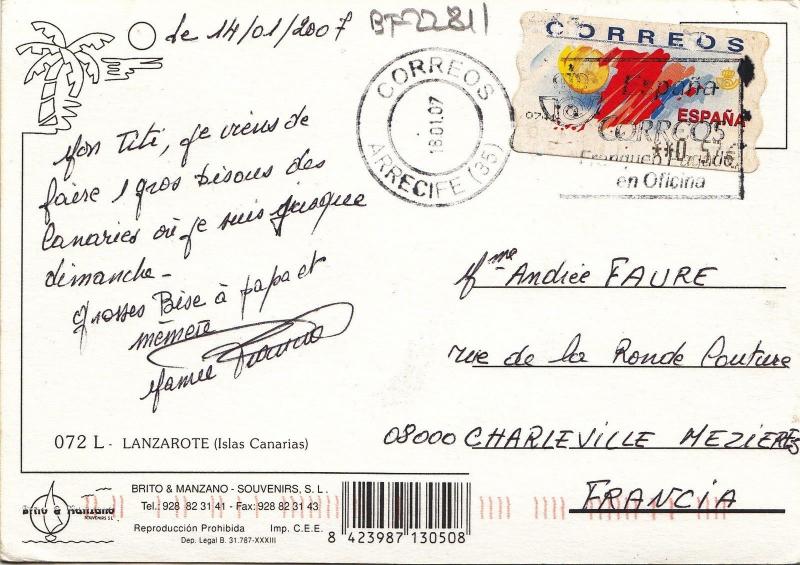 de 14/01/2007
BF22811
CORREOS
ESPAÑA
**0,54€
CORREOS
18.01.07
ARRECIFE (35)
España
CORREOS
Franqueo Pagado
en Oficina
Mon Titi, je viens de
faire 1 gros bisous des
Canaries où je suis jusque
dimanche -
grosses Bise à papa et
mémère
Mamie
Mme Andrée FAURE
rue de la Ronde Couture
08000 CHARLEVILLE MEZIERES
FRANCIA
072 L - LANZAROTE (Islas Canarias)
Brito & Manzano
SOUVENIRS S.L.
BRITO & MANZANO - SOUVENIRS, S. L.
Tel.: 928 82 31 41 - Fax: 928 82 31 43
Reproducción Prohibida Imp. C.E.E.
Dep. Legal B. 31.787-XXXIII
8 423987 130508